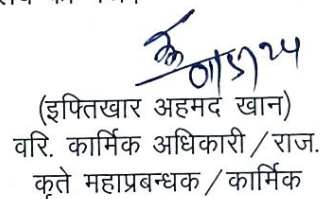 (इफ्तिखार अहमद खान)
वरि. कार्मिक अधिकारी / राज.
कृते महाप्रबन्धक / कार्मिक